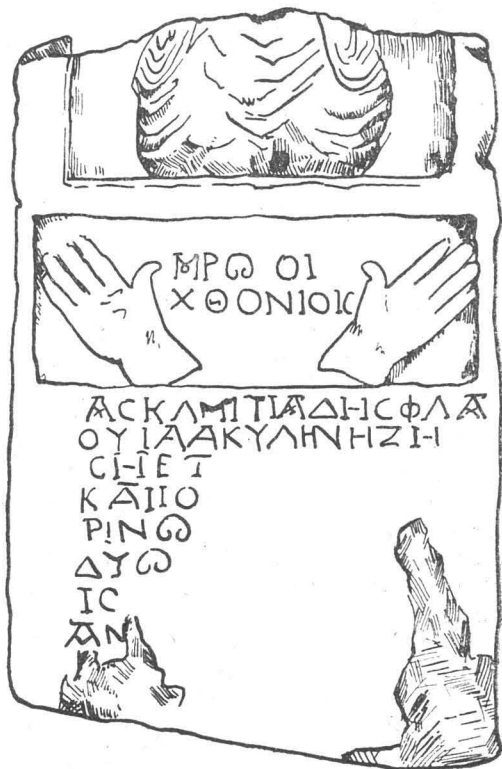 ΜΡΩ ΟΙ
ΧΘΟΝΙΟΙϹ
ΑϹΚΛΜΙΤΙΑΔΗϹΦΛΑ
ΟΥΙΑΑΚΥΛΗΝΗΖΗ
ϹΗΕΤ
ΚΑΙΙΟ
ΡΙΝΩ
ΔΥΩ
ΙϹ
ΑΝ